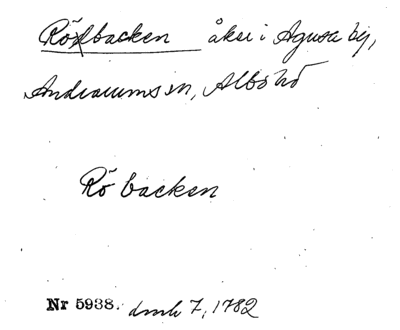 Rödbacken åker i Agusa by,
Andrarums sn, Albo hd
Rö backen
Nr 5938. 7, 1782